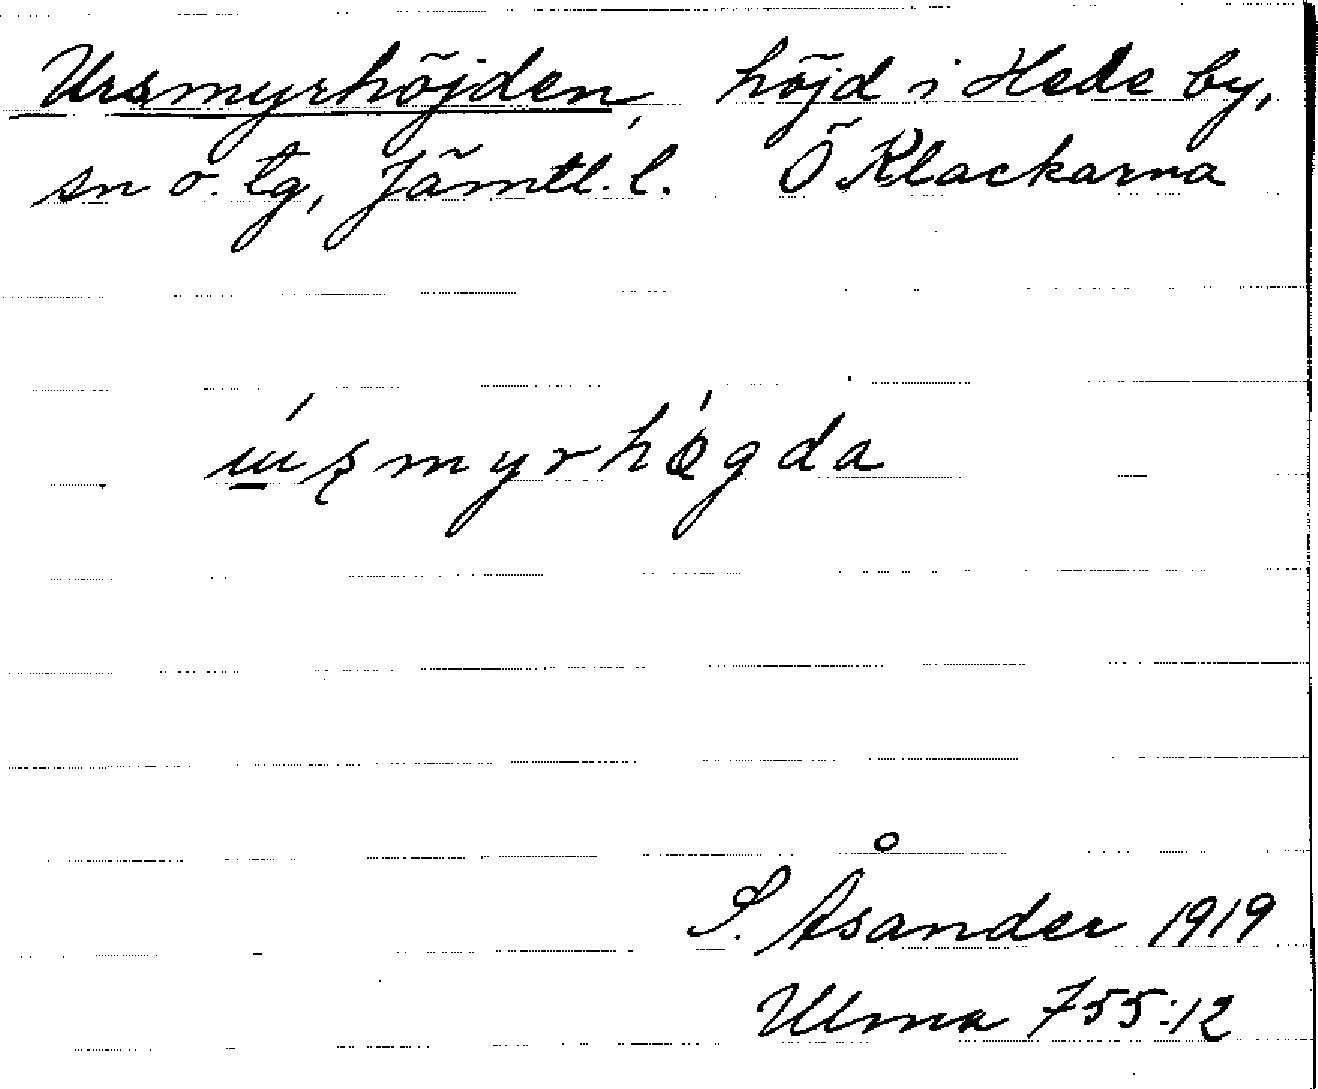 Ursmyrhöjden, höjd i Hede by,
sn o. tg, Jämtl. l. Ö Klackarna
ɯ́ʂmyrhǿgda
S. Åsander 1919
Ulma 755:12